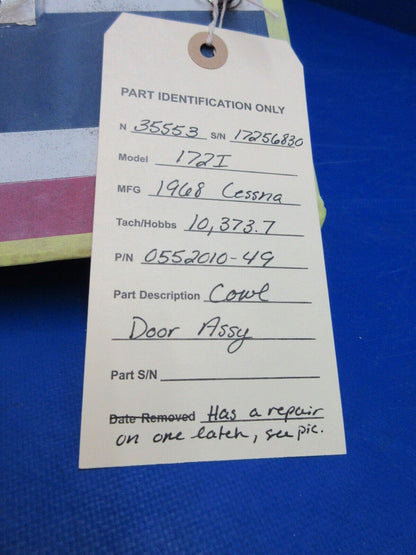 PART IDENTIFICATION ONLY
N 35553 S/N 17256830
Model 172I
MFG 1968 Cessna
Tach/Hobbs 10,373.7
P/N 0552010-49
Part Description Cowl
Door Assy
Part S/N
Date Removed Has a repair
on one latch, see pic.